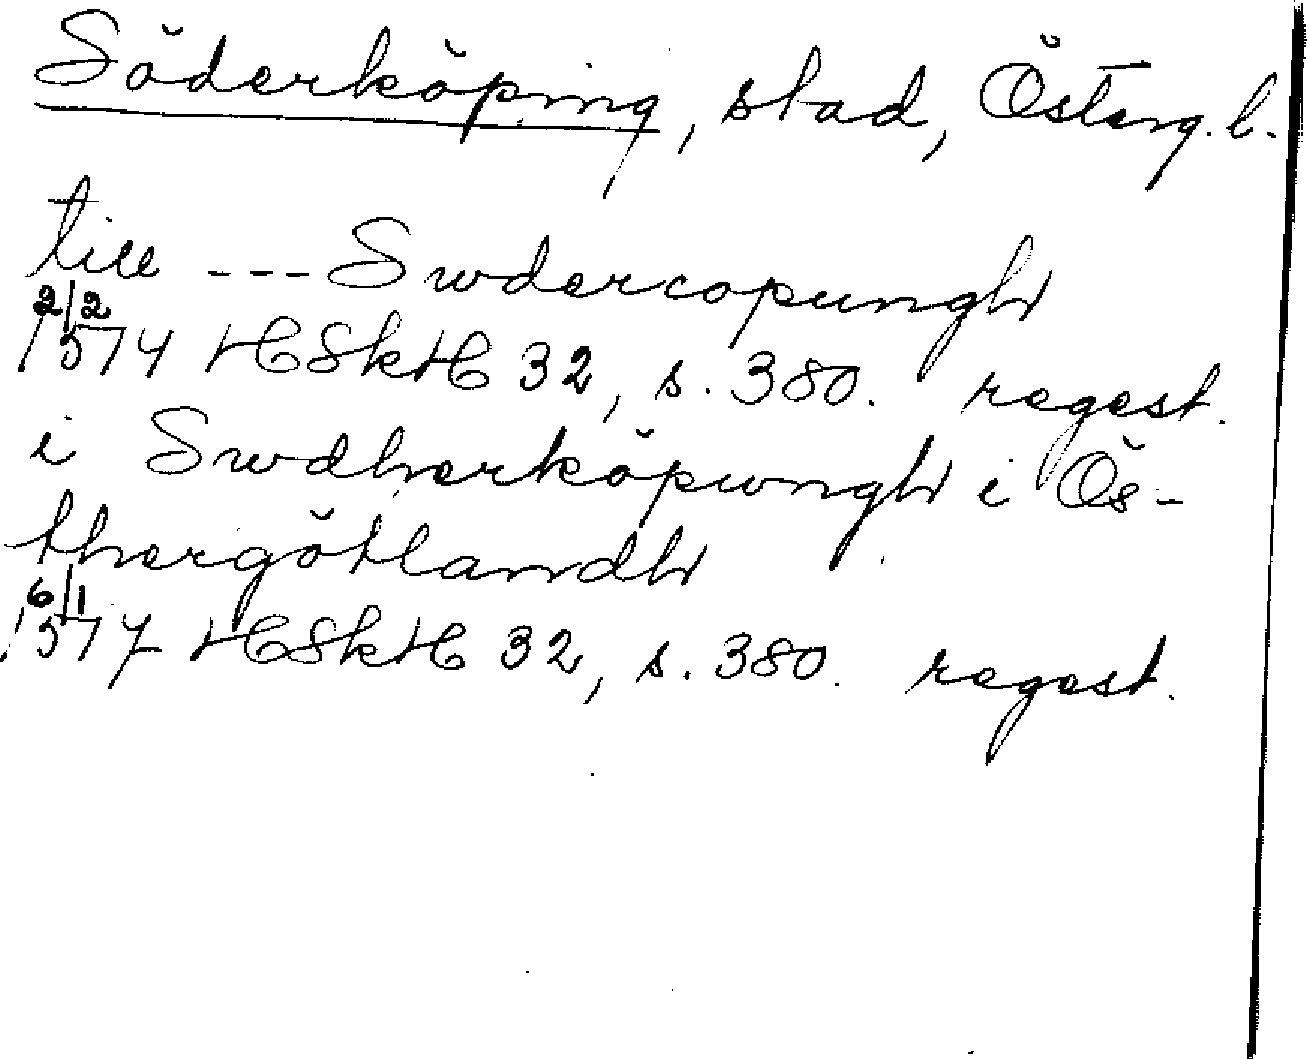 Söderköping, stad, Österg. l.
till --- Swdercopungh
2/2
1574 HSkH 32, s. 380. regest.
i Swdherköpwngh i Ös-
thergötlandh
6/1
1577 HSkH 32, s. 380. regest.